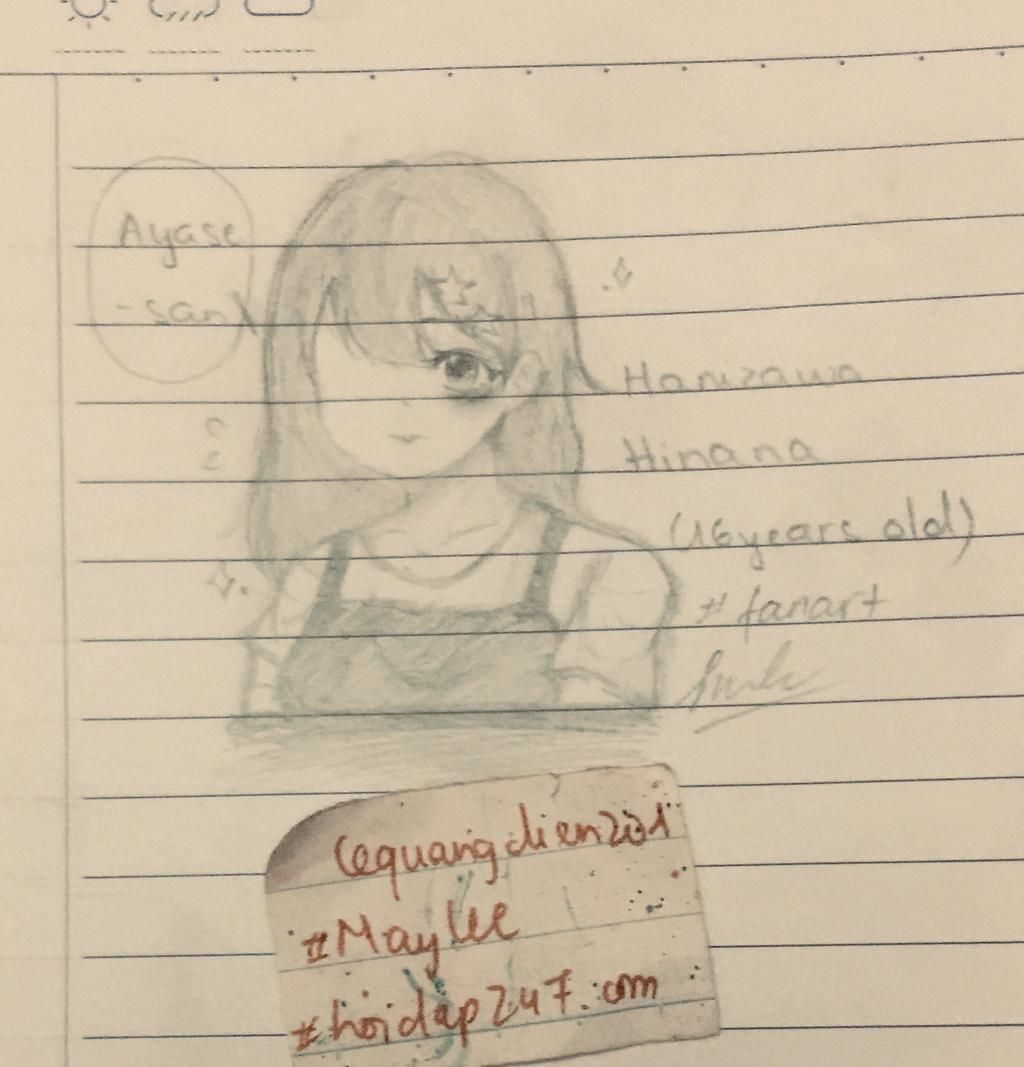 Ayase
-san
Hanizawa
Hinana
(16 years old)
# fanart
lequangdien201
#MayLee
#hoidap247.com